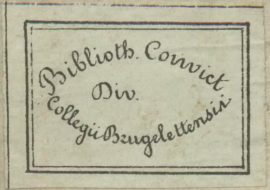 Biblioth. Convict
Div.
Collegii Brugelettensis